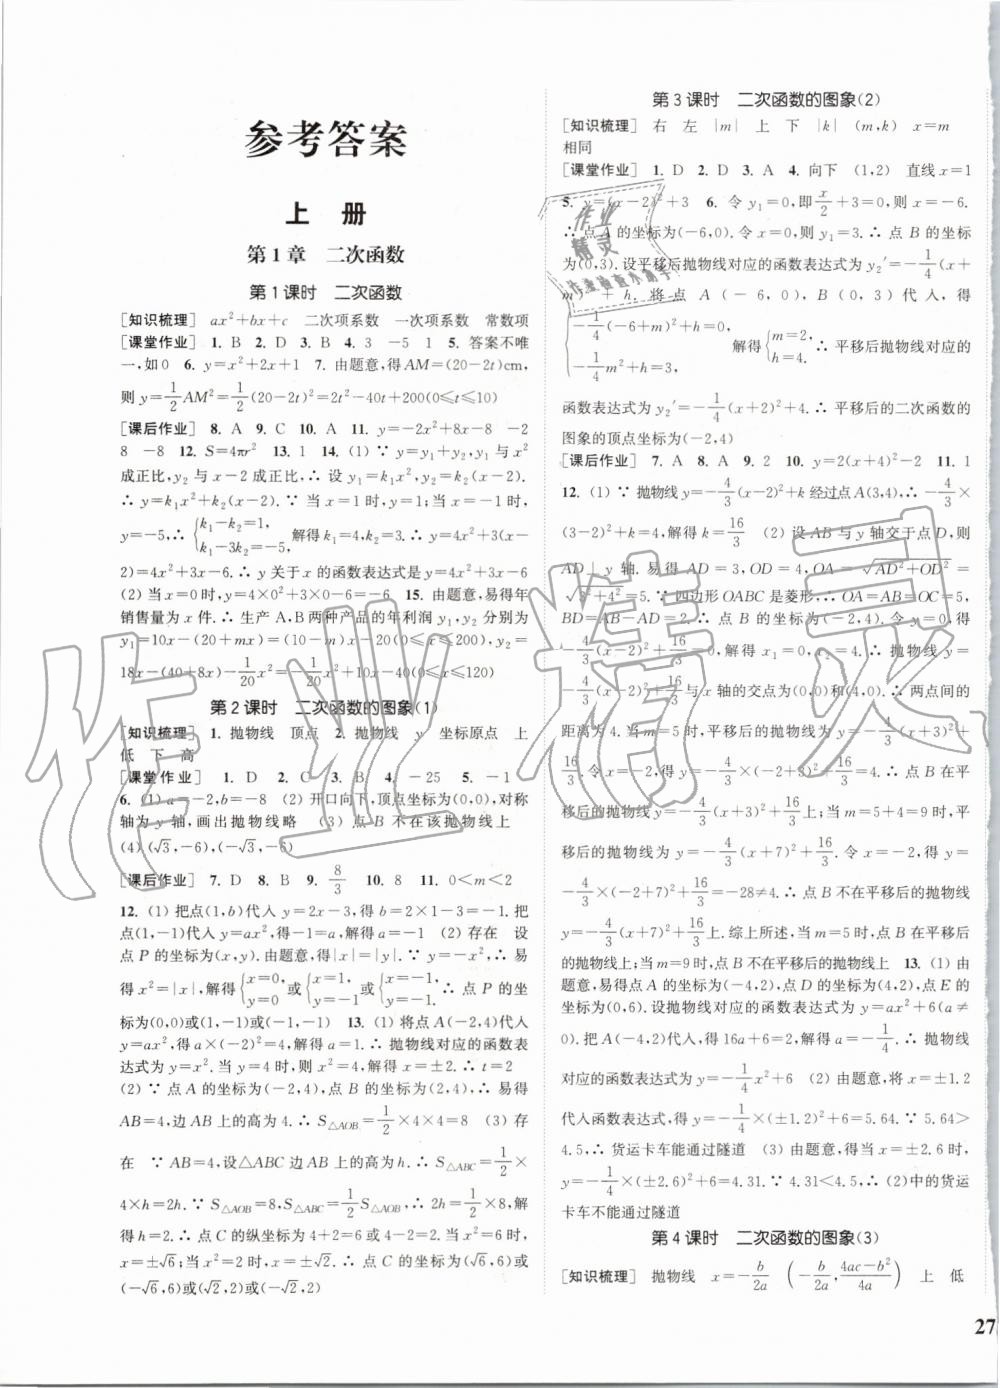 参考答案
上 册
第1章 二次函数
第1课时 二次函数
[知识梳理] ax²+bx+c 二次项系数 一次项系数 常数项
[课堂作业] 1. B 2. D 3. B 4. 3 -5 1 5. 答案不唯
一,如0 6. y=x²+2x+1 7. 由题意,得AM=(20-2t)cm,
则y=1/2AM²=1/2(20-2t)²=2t²-40t+200(0≤t≤10)
[课后作业] 8. A 9. C 10. A 11. y=-2x²+8x-8 -2
8 -8 12. S=4πr² 13. 1 14. (1) ∵ y=y₁+y₂,y₁与x²
成正比,y₂与x-2成正比,∴ 设y₁=k₁x²,y₂=k₂(x-2).
∴ y=k₁x²+k₂(x-2). ∵ 当x=1时,y=1;当x=-1时,
y=-5,∴ {k₁-k₂=1, k₁-3k₂=-5. 解得k₁=4,k₂=3. ∴ y=4x²+3(x-
2)=4x²+3x-6. ∴ y关于x的函数表达式是y=4x²+3x-6
(2) 当x=0时,y=4×0²+3×0-6=-6 15. 由题意,易得年
销售量为x件. ∴ 生产A,B两种产品的年利润y₁,y₂分别为
y₁=10x-(20+mx)=(10-m)x-20(0≤x≤200),y₂=
18x-(40+8x)-1/20x²=-1/20x²+10x-40(0≤x≤120)
第2课时 二次函数的图象(1)
[知识梳理] 1. 抛物线 顶点 2. 抛物线 y 坐标原点 上
低 下 高
[课堂作业] 1. D 2. C 3. B 4. -25 5. -1
6. (1) a=-2,b=-8 (2) 开口向下,顶点坐标为(0,0),对称
轴为y轴,画出抛物线略 (3) 点B不在该抛物线上
(4) (√3,-6),(-√3,-6)
[课后作业] 7. D 8. B 9. 8/3 10. 8 11. 0<m<2
12. (1) 把点(1,b)代入y=2x-3,得b=2×1-3=-1. 把
点(1,-1)代入y=ax²,得-1=a,解得a=-1 (2) 存在 设
点P的坐标为(x,y). 由题意,得|x|=|y|. ∵ y=-x²,∴ 易
得x²=|x|,解得{x=0, y=0 或{x=1, y=-1 或{x=-1, y=-1. ∴ 点P的坐
标为(0,0)或(1,-1)或(-1,-1) 13. (1) 将点A(-2,4)代入
y=ax²,得a×(-2)²=4,解得a=1. ∴ 抛物线对应的函数表
达式为y=x². 当y=4时,x²=4,解得x=±2. ∴ t=2
(2) ∵ 点A的坐标为(-2,4),点B的坐标为(2,4),∴ 易得
AB=4,边AB上的高为4. ∴ S△AOB=1/2×4×4=8 (3) 存
在 ∵ AB=4,设△ABC边AB上的高为h. ∴ S△ABC=1/2×
4×h=2h. ∵ S△AOB=8,S△ABC=1/2S△AOB,∴ 2h=1/2×8,解得
h=2. ∴ 点C的纵坐标为4+2=6或4-2=2. ∴ 当x²=6时,
x=±√6;当x²=2时,x=±√2. ∴ 点C的坐标为(√6,6)或
(-√6,6)或(√2,2)或(-√2,2)
第3课时 二次函数的图象(2)
[知识梳理] 右 左 |m| 上 下 |k| (m,k) x=m
相同
[课堂作业] 1. D 2. D 3. A 4. 向下 (1,2) 直线x=1
5. y=(x-2)²+3 6. 令y₁=0,即x/2+3=0,解得x=-6.
∴ 点A的坐标为(-6,0). 令x=0,则y₁=3. ∴ 点B的坐标
为(0,3). 设平移后抛物线对应的函数表达式为y₂′=-1/4(x+
m)²+h. 将点A(-6,0),B(0,3)代入,得
{-1/4(-6+m)²+h=0, -1/4m²+h=3, 解得{m=2, h=4. ∴ 平移后抛物线对应的
函数表达式为y₂′=-1/4(x+2)²+4. ∴ 平移后的二次函数的
图象的顶点坐标为(-2,4)
[课后作业] 7. A 8. A 9. 2 10. y=2(x+4)²-2 11. 1
12. (1) ∵ 抛物线y=-4/3(x-2)²+k经过点A(3,4),∴ -4/3×
(3-2)²+k=4,解得k=16/3 (2) 设AB与y轴交于点D,则
AD⊥y轴. 易得AD=3,OD=4,∴ OA=√AD²+OD²=
√3²+4²=5. ∵ 四边形OABC是菱形,∴ OA=AB=OC=5,
BD=AB-AD=2. ∴ 点B的坐标为(-2,4). 令y=0,得
-4/3(x-2)²+16/3=0,解得x₁=0,x₂=4. ∴ 抛物线y=
-4/3(x-2)²+16/3与x轴的交点为(0,0)和(4,0). ∴ 两点间的
距离为4. 当m=5时,平移后的抛物线为y=-4/3(x+3)²+
16/3. 令x=-2,得y=-4/3×(-2+3)²+16/3=4. ∴ 点B在平
移后的抛物线y=-4/3(x+3)²+16/3上. 当m=5+4=9时,平
移后的抛物线为y=-4/3(x+7)²+16/3. 令x=-2,得y=
-4/3×(-2+7)²+16/3=-28≠4. ∴ 点B不在平移后的抛物线
y=-4/3(x+7)²+16/3上. 综上所述,当m=5时,点B在平移后
的抛物线上;当m=9时,点B不在平移后的抛物线上 13. (1) 由
题意,易得点A的坐标为(-4,2),点D的坐标为(4,2),点E的
坐标为(0,6). 设抛物线对应的函数表达式为y=ax²+6(a≠
0). 把A(-4,2)代入,得16a+6=2,解得a=-1/4. ∴ 抛物线
对应的函数表达式为y=-1/4x²+6 (2) 由题意,将x=±1.2
代入函数表达式,得y=-1/4×(±1.2)²+6=5.64. ∵ 5.64>
4.5,∴ 货运卡车能通过隧道 (3) 由题意,得当x=±2.6时,
y=-1/4×(±2.6)²+6=4.31. ∵ 4.31<4.5,∴ (2)中的货运
卡车不能通过隧道
第4课时 二次函数的图象(3)
[知识梳理] 抛物线 x=-b/2a (-b/2a, 4ac-b²/4a) 上 低
27
作业精灵